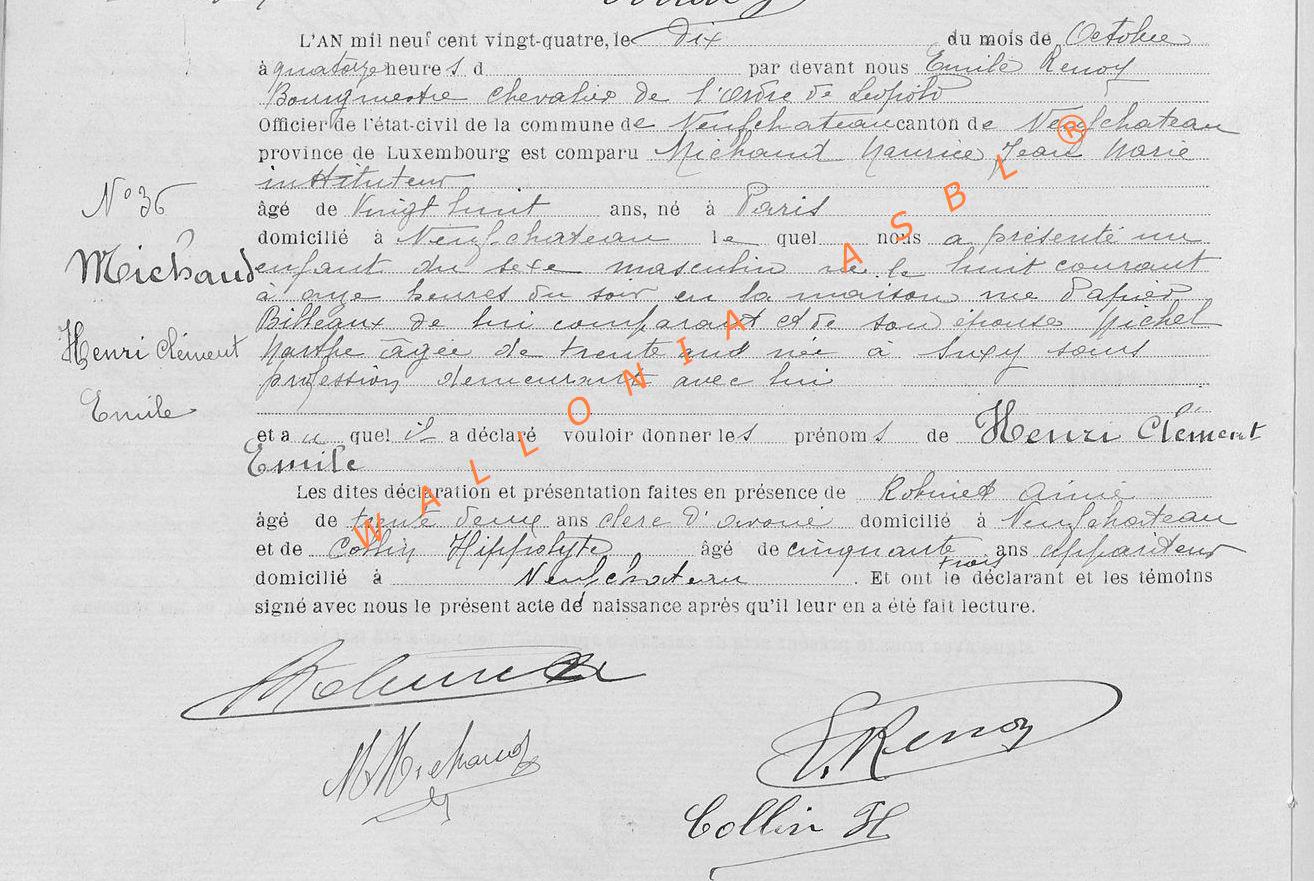 L'AN mil neuf cent vingt-quatre, le dix du mois de Octobre
à quatorze heures d par devant nous Emile Renoy
Bourgmestre chevalier de l'ordre de Léopold
Officier de l'état-civil de la commune de Neufchateau canton de Neufchateau
province de Luxembourg est comparu Michaud Maurice Jean Marie
instituteur
âgé de vingt huit ans, né à Paris
domicilié à Neufchateau le quel nous a présenté un
enfant du sexe masculin né le huit courant
à onze heures du soir en la maison
de lui comparant et de son épouse Michel
Marthe âgée de trente née à Suxy sans
profession demeurant avec lui
et au quel il a déclaré vouloir donner les prénoms de Henri Clément
Emile
Les dites déclaration et présentation faites en présence de Robinet Aimé
âgé de trente deux ans clerc d'avoué domicilié à Neufchateau
et de Collin Hippolyte âgé de cinquante trois ans appariteur
domicilié à Neufchateau. Et ont le déclarant et les témoins
signé avec nous le présent acte de naissance après qu'il leur en a été fait lecture.
N° 36
Michaud
Henri Clément
Emile
Robinet
M Michaud
E. Renoy
Collin H
WALLONIA ASBL ®